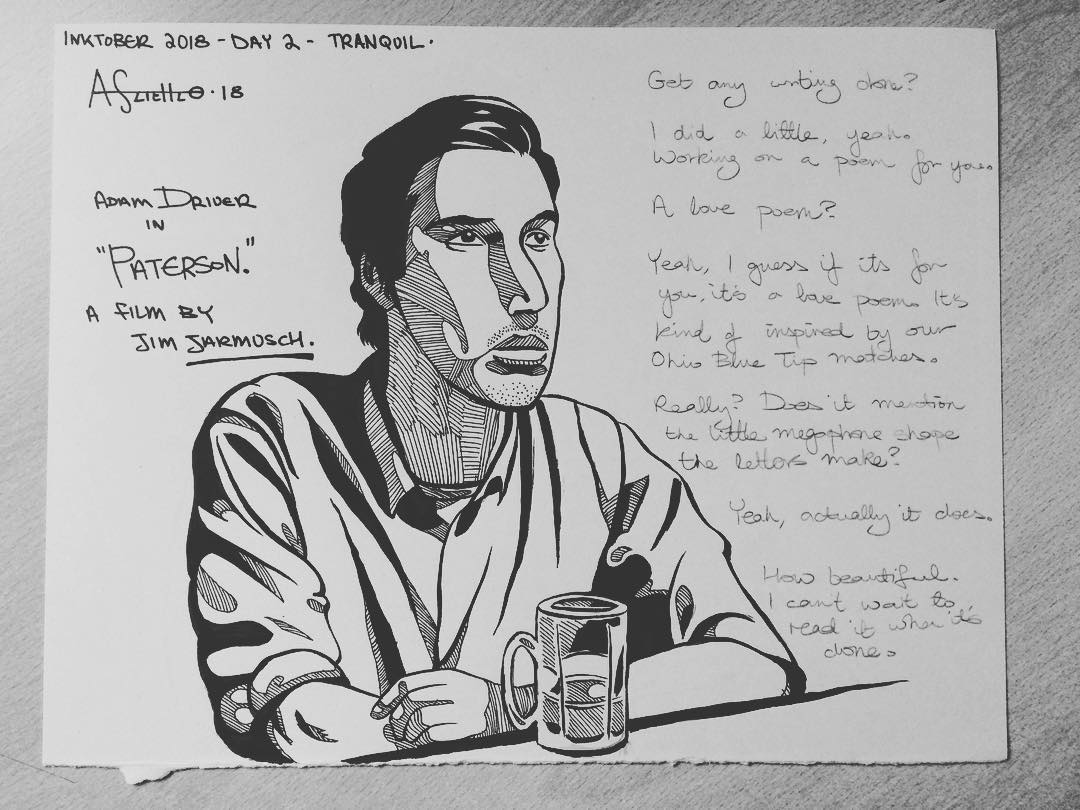 INKTOBER 2018 - DAY 2 - TRANQUIL.
18
ADAM DRIVER
IN
"PATERSON."
A FILM BY
JIM JARMUSCH.
Get any writing done?
I did a little, yeah.
Working on a poem for you.
A love poem?
Yeah, I guess if its for
you, it's a love poem. It's
kind of inspired by our
Ohio Blue Tip matches.
Really? Does it mention
the little megaphone shape
the letters make?
Yeah, actually it does.
How beautiful.
I can't wait to
read it when it's
done.